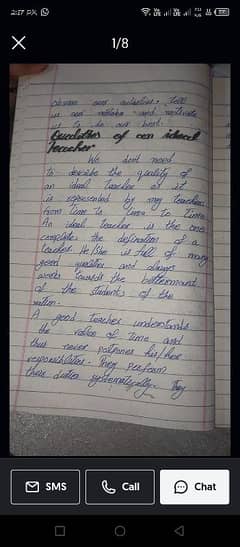 1/8
Qualities of an ideal
teacher
We dont need
to describe the quality of
an ideal teacher as it
is represented by my teachers
from time to time to time.
An ideal teacher is the one
complete the defination of a
teacher. He/She is full of many
good qualities and always
works towards the betterment
of the students of the
nation.
A good teacher understands
the value of time and
thus never his/her
They perform
their duties systematically. They
SMS
Call
Chat